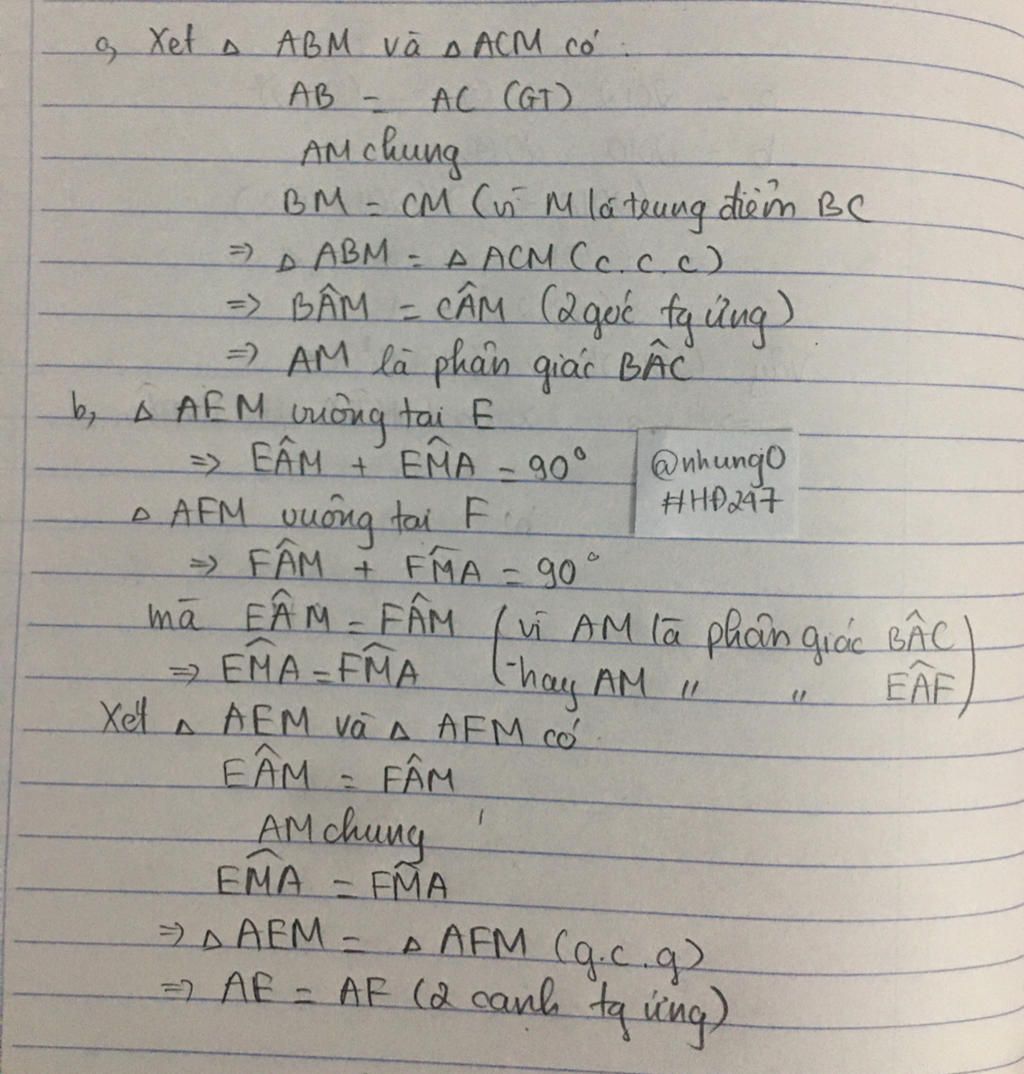 a, Xet △ ABM và △ ACM có:
AB = AC (GT)
AM chung
BM = CM (vì M là trung điểm BC
=> △ ABM = △ ACM (c.c.c)
=> BÂM = CÂM (2 góc tg ứng)
=> AM là phân giác BÂC
b, △ AEM vuông tai E
=> EÂM + EM̂A = 90°
@nhung0
#HĐ247
△ AFM vuông tai F
=> FÂM + FM̂A = 90°
mà EÂM = FÂM (vì AM là phân giác BÂC
=> EM̂A = FM̂A -hay AM " " EÂF)
Xét △ AEM và △ AFM có
EÂM = FÂM
AM chung
EM̂A = FM̂A
=> △ AEM = △ AFM (g.c.g)
=> AE = AF (2 canh tg ứng)